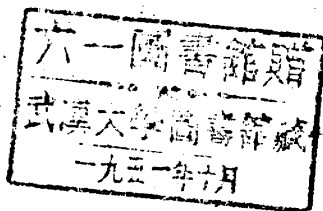 六一圖書館贈
武漢大學圖書館藏
一九五一年十月